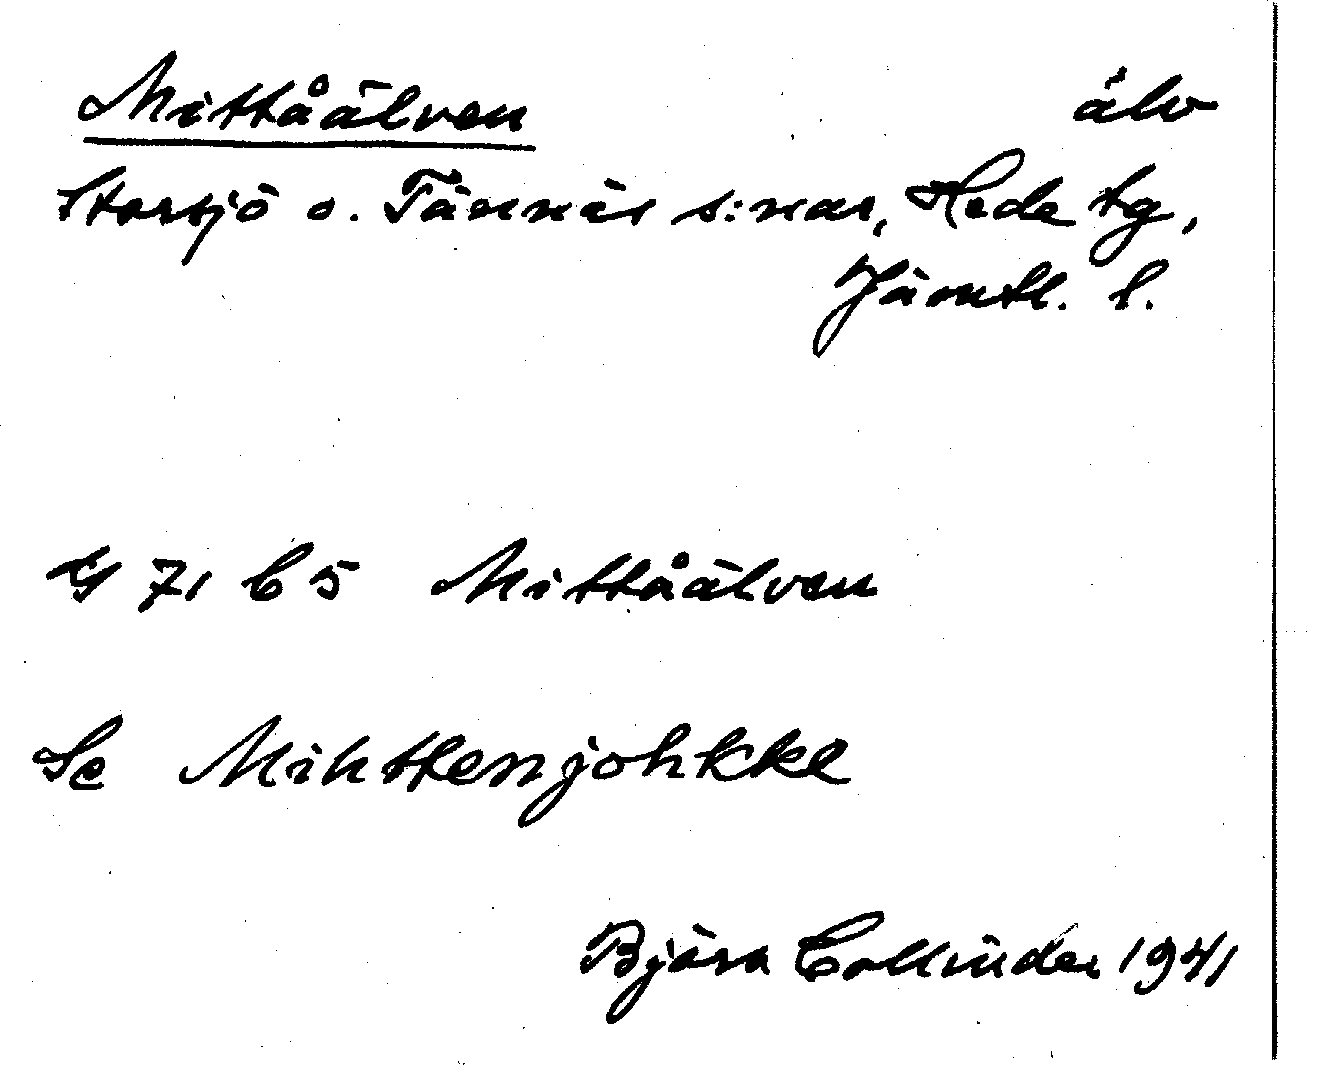 Mittåälven älv
Storsjö o. Tännäs s:nar, Hede tg,
Jämtl. l.
G 71 C 5 Mittåälven
Se Mihttenjohkke
Björn Collinder 1941